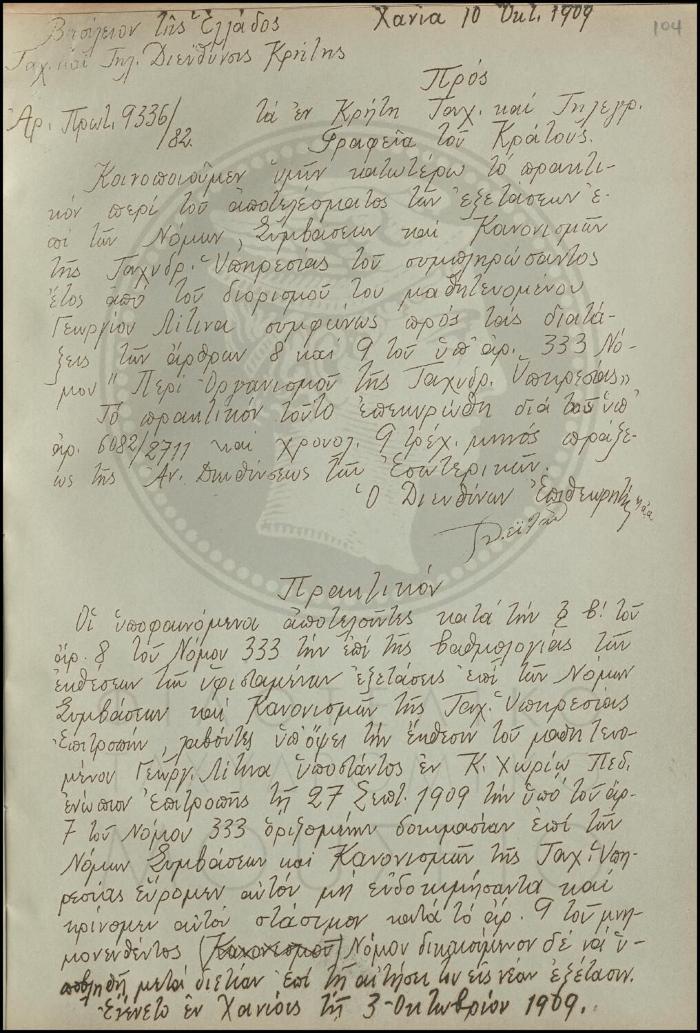 Βασίλειον τῆς Ἑλλάδος Χανιά 10 Ὀκτ. 1909
104
Ταχ. καὶ Τηλ. Διεύθυνσις Κρήτης
Πρὸς
Ἀρ. Πρωτ. 9336/82. τὰ ἐν Κρήτῃ Ταχ. καὶ Τηλεγρ.
Γραφεῖα τοῦ Κράτους.
Κοινοποιοῦμεν ὑμῖν κατωτέρω τὸ πρακτι-
κὸν περὶ τοῦ ἀποτελέσματος τῶν ἐξετάσεων ἐ-
πὶ τῶν Νόμων, Συμβάσεων καὶ Κανονισμῶν
τῆς Ταχυδρ. Ὑπηρεσίας τοῦ συμπληρώσαντος
ἔτος ἀπὸ τοῦ διορισμοῦ του μαθητευομένου
Γεωργίου Λίτινα συμφώνως πρὸς τὰς διατά-
ξεις τῶν ἄρθρων 8 καὶ 9 τοῦ ὑπ' ἀρ. 333 Νό-
μου "Περὶ Ὀργανισμοῦ τῆς Ταχυδρ. Ὑπηρεσίας"
Τὸ πρακτικὸν τοῦτο ἐπεκυρώθη διὰ τῆς ὑπ'
ἀρ. 6082/2711 καὶ χρονολ. 9 τρέχ. μηνὸς πράξε-
ως τῆς Ἀν. Διευθύνσεως τῶν Ἐσωτερικῶν.
Ὁ Διευθύνων Ἐπιθεωρητής
Πρακτικόν
Οἱ ὑποφαινόμενοι ἀποτελοῦντες κατὰ τὴν § β! τοῦ
ἀρ. 8 τοῦ Νόμου 333 τὴν ἐπὶ τῆς βαθμολογίας τῶν
ἐκθέσεων τῶν ὑφισταμένων ἐξετάσεις ἐπὶ τῶν Νόμων
Συμβάσεων καὶ Κανονισμῶν τῆς Ταχ. Ὑπηρεσίας
Ἐπιτροπήν, λαβόντες ὑπ' ὄψει τὴν ἔκθεσιν τοῦ μαθητευο-
μένου Γεωργ. Λίτινα ὑποστάντος ἐν Κ. Χωρίῳ Πεδ.
ἐνώπιον Ἐπιτροπῆς τῇ 27 Σεπτ. 1909 τὴν ὑπὸ τοῦ ἀρ-
7 τοῦ Νόμου 333 ὁριζομένην δοκιμασίαν ἐπὶ τῶν
Νόμων Συμβάσεων καὶ Κανονισμῶν τῆς Ταχ. Ὑπη-
ρεσίας εὕρομεν αὐτὸν μὴ εὐδοκιμήσαντα καὶ
κρίνομεν αὐτὸν στάσιμον κατὰ τὸ ἀρ. 9 τοῦ μνη-
μονευθέντος (Κανονισμοῦ) Νόμου δικαιούμενον δὲ νὰ ὑ-
ποβληθῇ μετὰ διετίαν ἐπὶ τῇ αἰτήσει του εἰς νέαν ἐξέτασιν.
Ἐγένετο ἐν Χανίοις τῇ 3 Ὀκτωβρίου 1909.